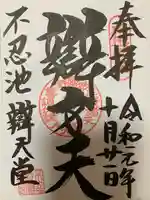 奉拝
令和元年
十月廿一日
辯才天
不忍池 辯天堂